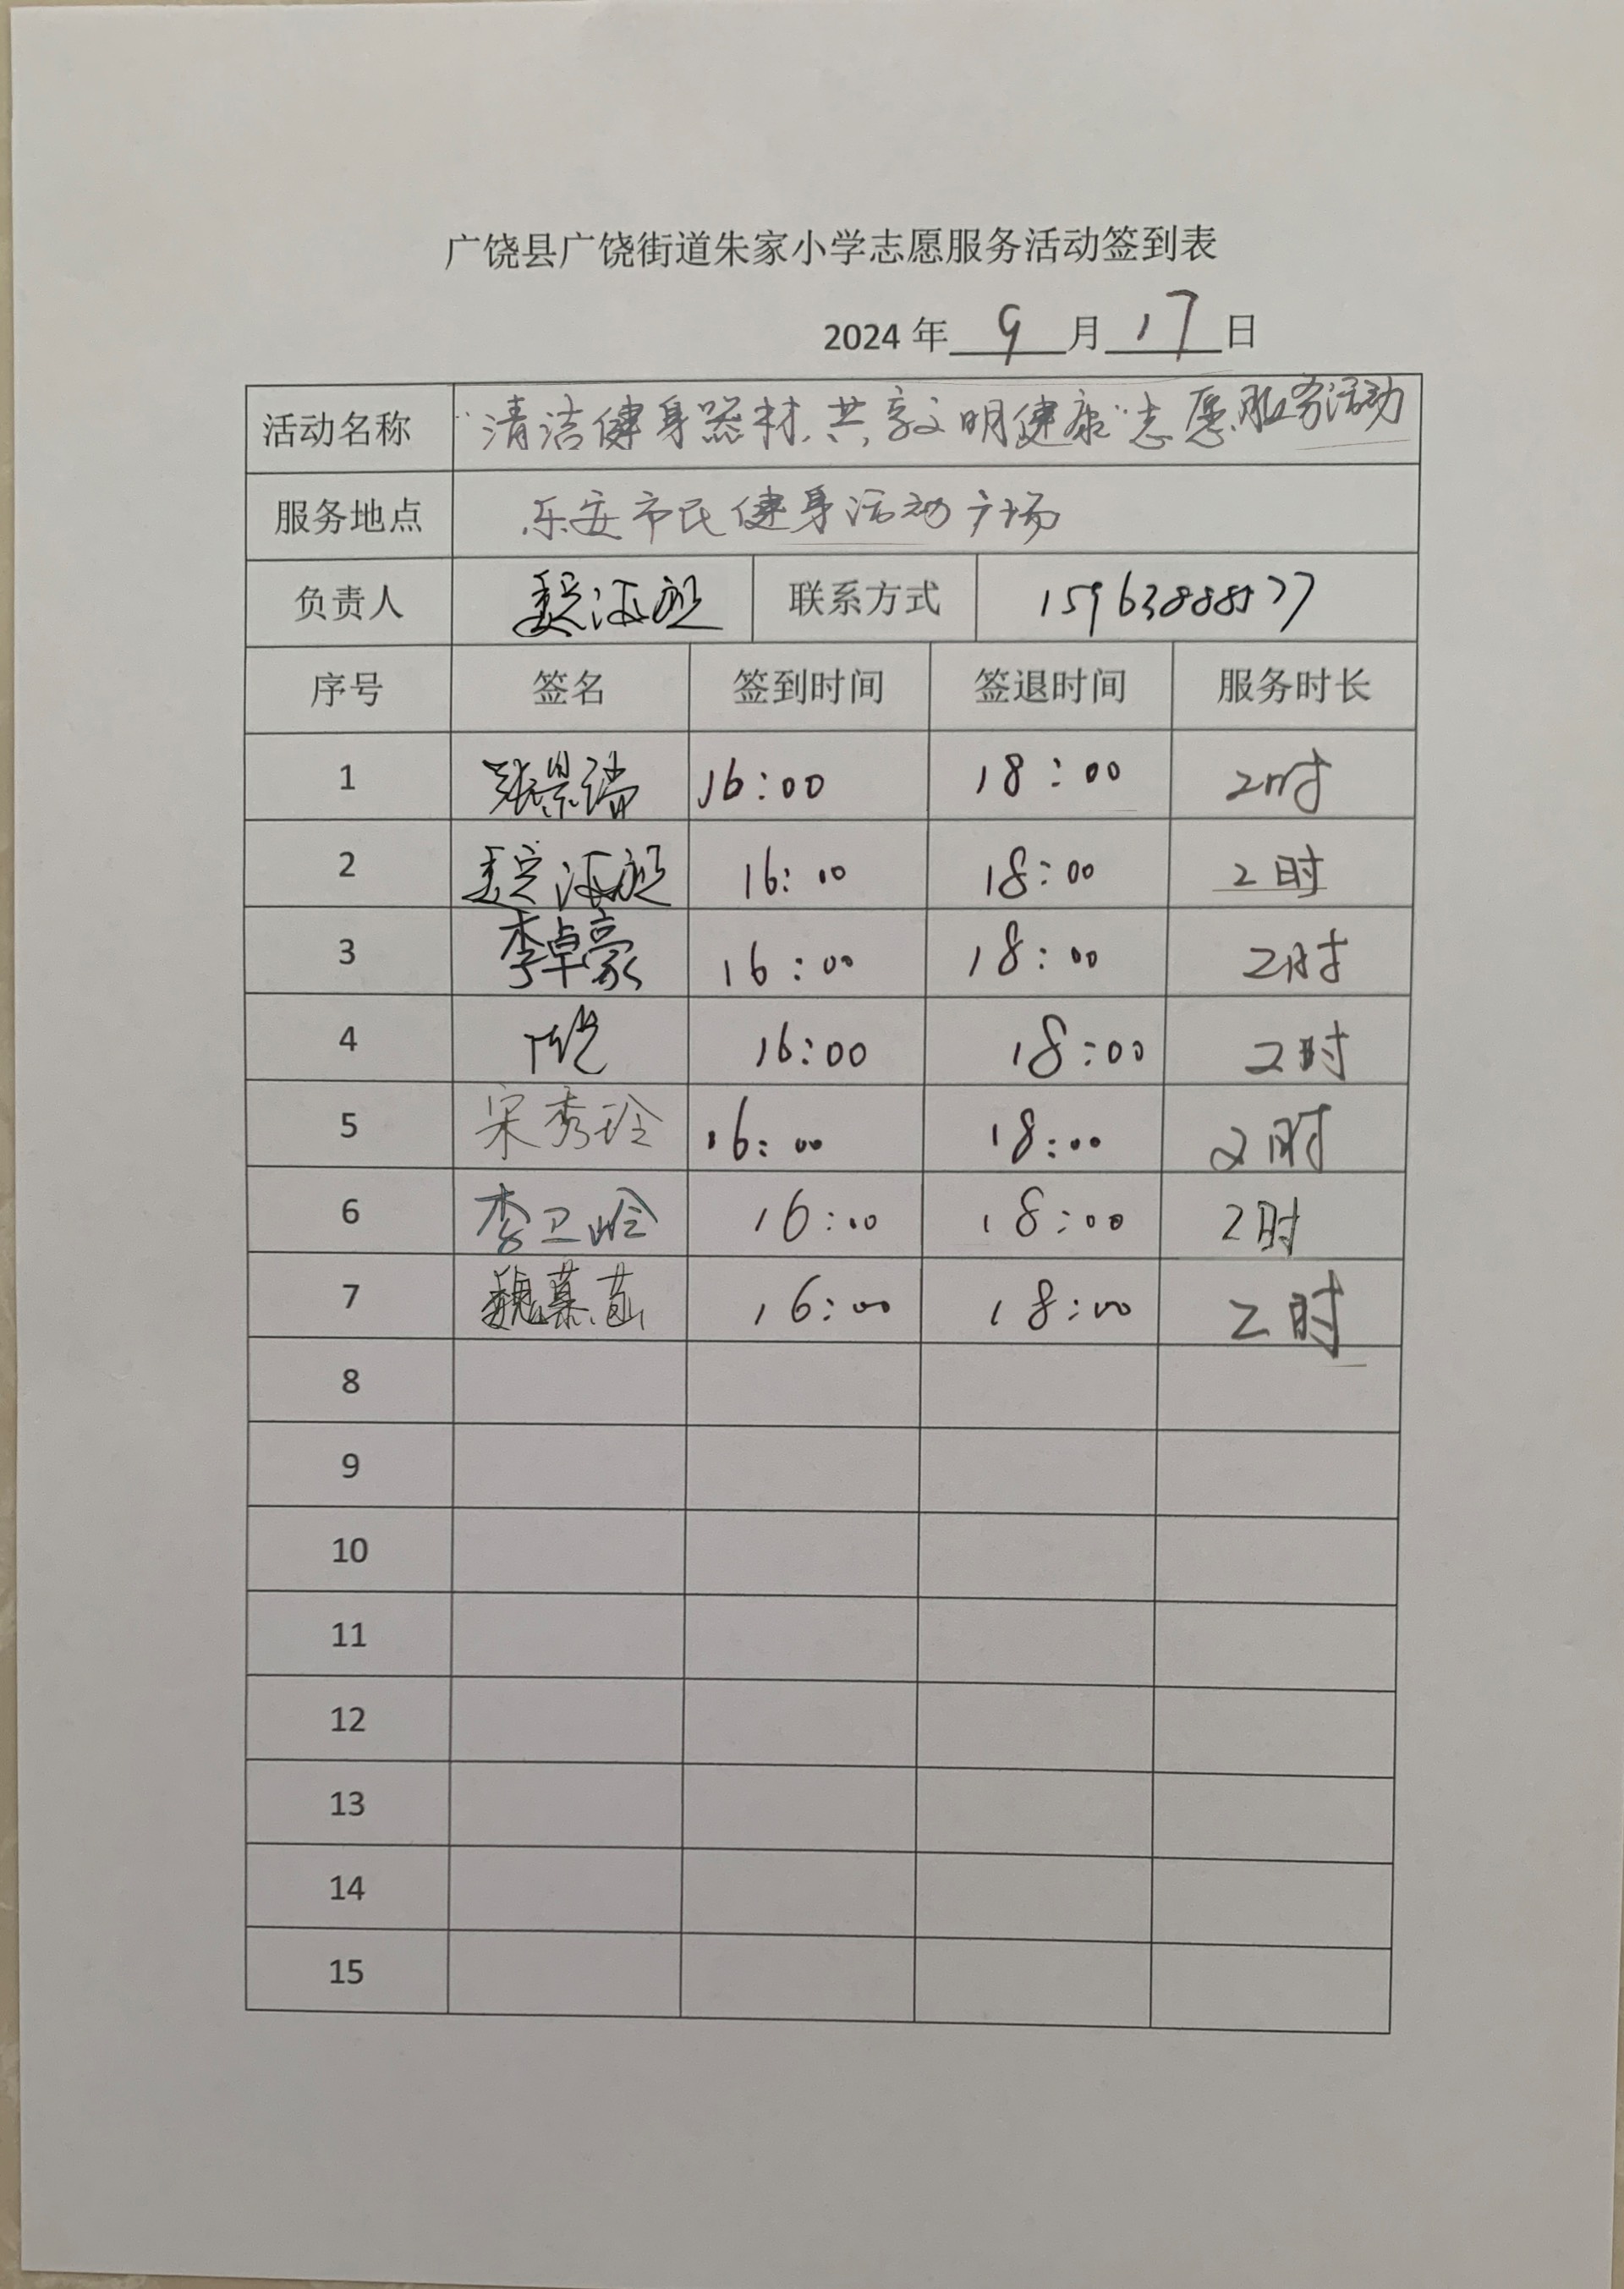 广饶县广饶街道朱家小学志愿服务活动签到表
2024 年 9 月 17 日
活动名称 “清洁健身器材,共享文明健康”志愿服务活动
服务地点 乐安市民健身活动广场
负责人 魏海 联系方式 15963888577
序号 签名 签到时间 签退时间 服务时长
1 张景瑞 16:00 18:00 2时
2 魏海 16:00 18:00 2时
3 李卓豪 16:00 18:00 2时
4 16:00 18:00 2时
5 宋秀玲 16:00 18:00 2时
6 李卫岭 16:00 18:00 2时
7 魏慕菡 16:00 18:00 2时
8
9
10
11
12
13
14
15